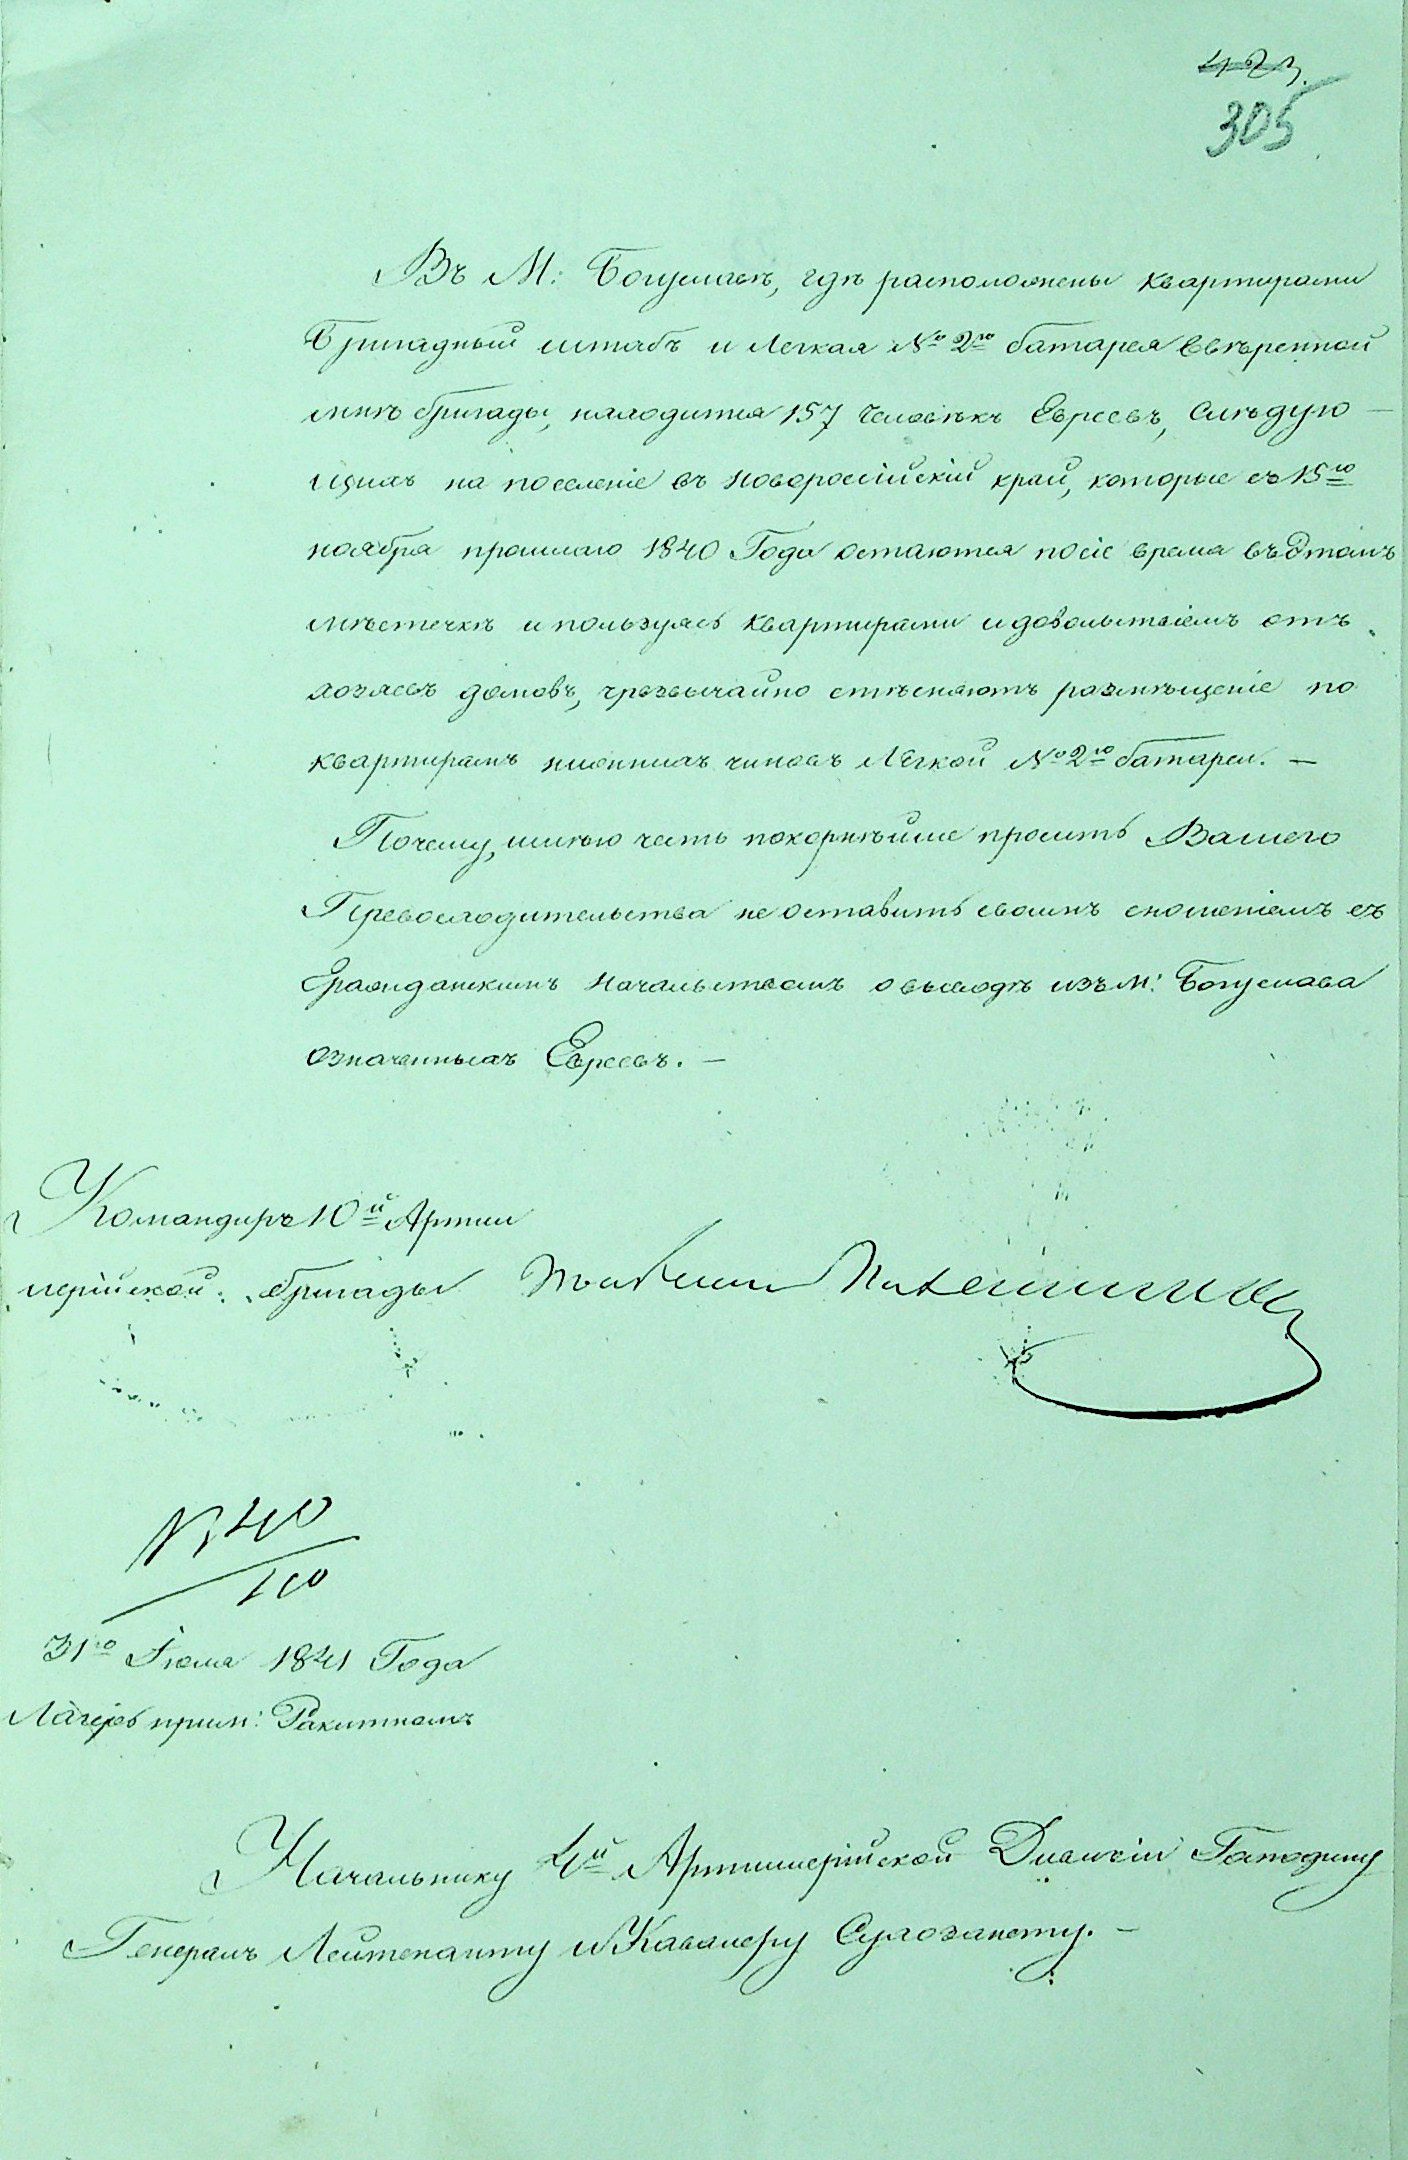 423.
305
Въ М: Богуславѣ, гдѣ расположены квартирами
Бригадный штабъ и легкая № 2го батарея ввѣренной
мнѣ бригады, находится 157 Человѣкъ Евреевъ, слѣдую-
щихъ на поселеніе въ новороссійскій край, которые съ 15го
ноября прошлаго 1840 Года остаются посіе время въ этомъ
мѣстечкѣ и пользуясь квартирами и довольствіемъ отъ
хозяевъ домовъ, чрезвычайно стѣсняютъ размѣщеніе по
квартирамъ нижнихъ чиновъ Легкой № 2го батареи. —
Почему, имѣю честь покорнѣйше просить Вашего
Превосходительства не оставить своимъ сношеніемъ съ
Гражданскимъ начальствомъ о выходѣ изъ м: Богуслава
означенныхъ Евреевъ. —
Командиръ 10й Артил
лерійской бригады
№ 40
31го Іюля 1841 Года
Лагерь при м: Ракитномъ
Начальнику 4й Артиллерійской Дивизіи Господину
Генералъ Лейтенанту и Кавалеру Сухозанету. —